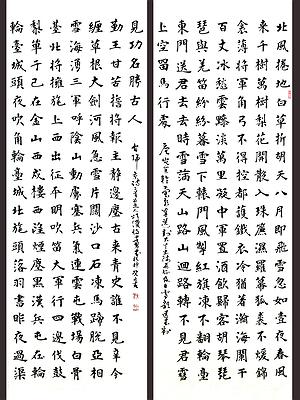 北風捲地白草折胡天八月即飛雪忽如壹夜春風
來千樹萬樹梨花開散入珠簾濕羅幕狐裘不暖錦
衾薄將軍角弓不得控都護鐵衣冷猶著瀚海闌干
百丈冰愁雲黲淡萬里凝中軍置酒飲歸客胡琴琵
琶與羌笛紛紛暮雪下轅門風掣紅旗凍不翻輪臺
東門送君去去時雪滿天山路山迴路轉不見君雪
上空留馬行處
輪臺城頭夜吹角輪臺城頭旄頭落羽書昨夜過渠
犂單于已在金山西戍樓西望煙塵黑漢兵屯在輪
臺北上將擁旄西出征平明吹笛大軍行四邊伐鼓
雪海湧三軍大呼陰山動虜塞兵氣連雲屯戰場白骨
纏草根劍河風急雪片闊沙口石凍馬蹄脫亞相
勤王甘苦辛誓將報主靜邊塵古來青史誰不見今
見功名勝古人